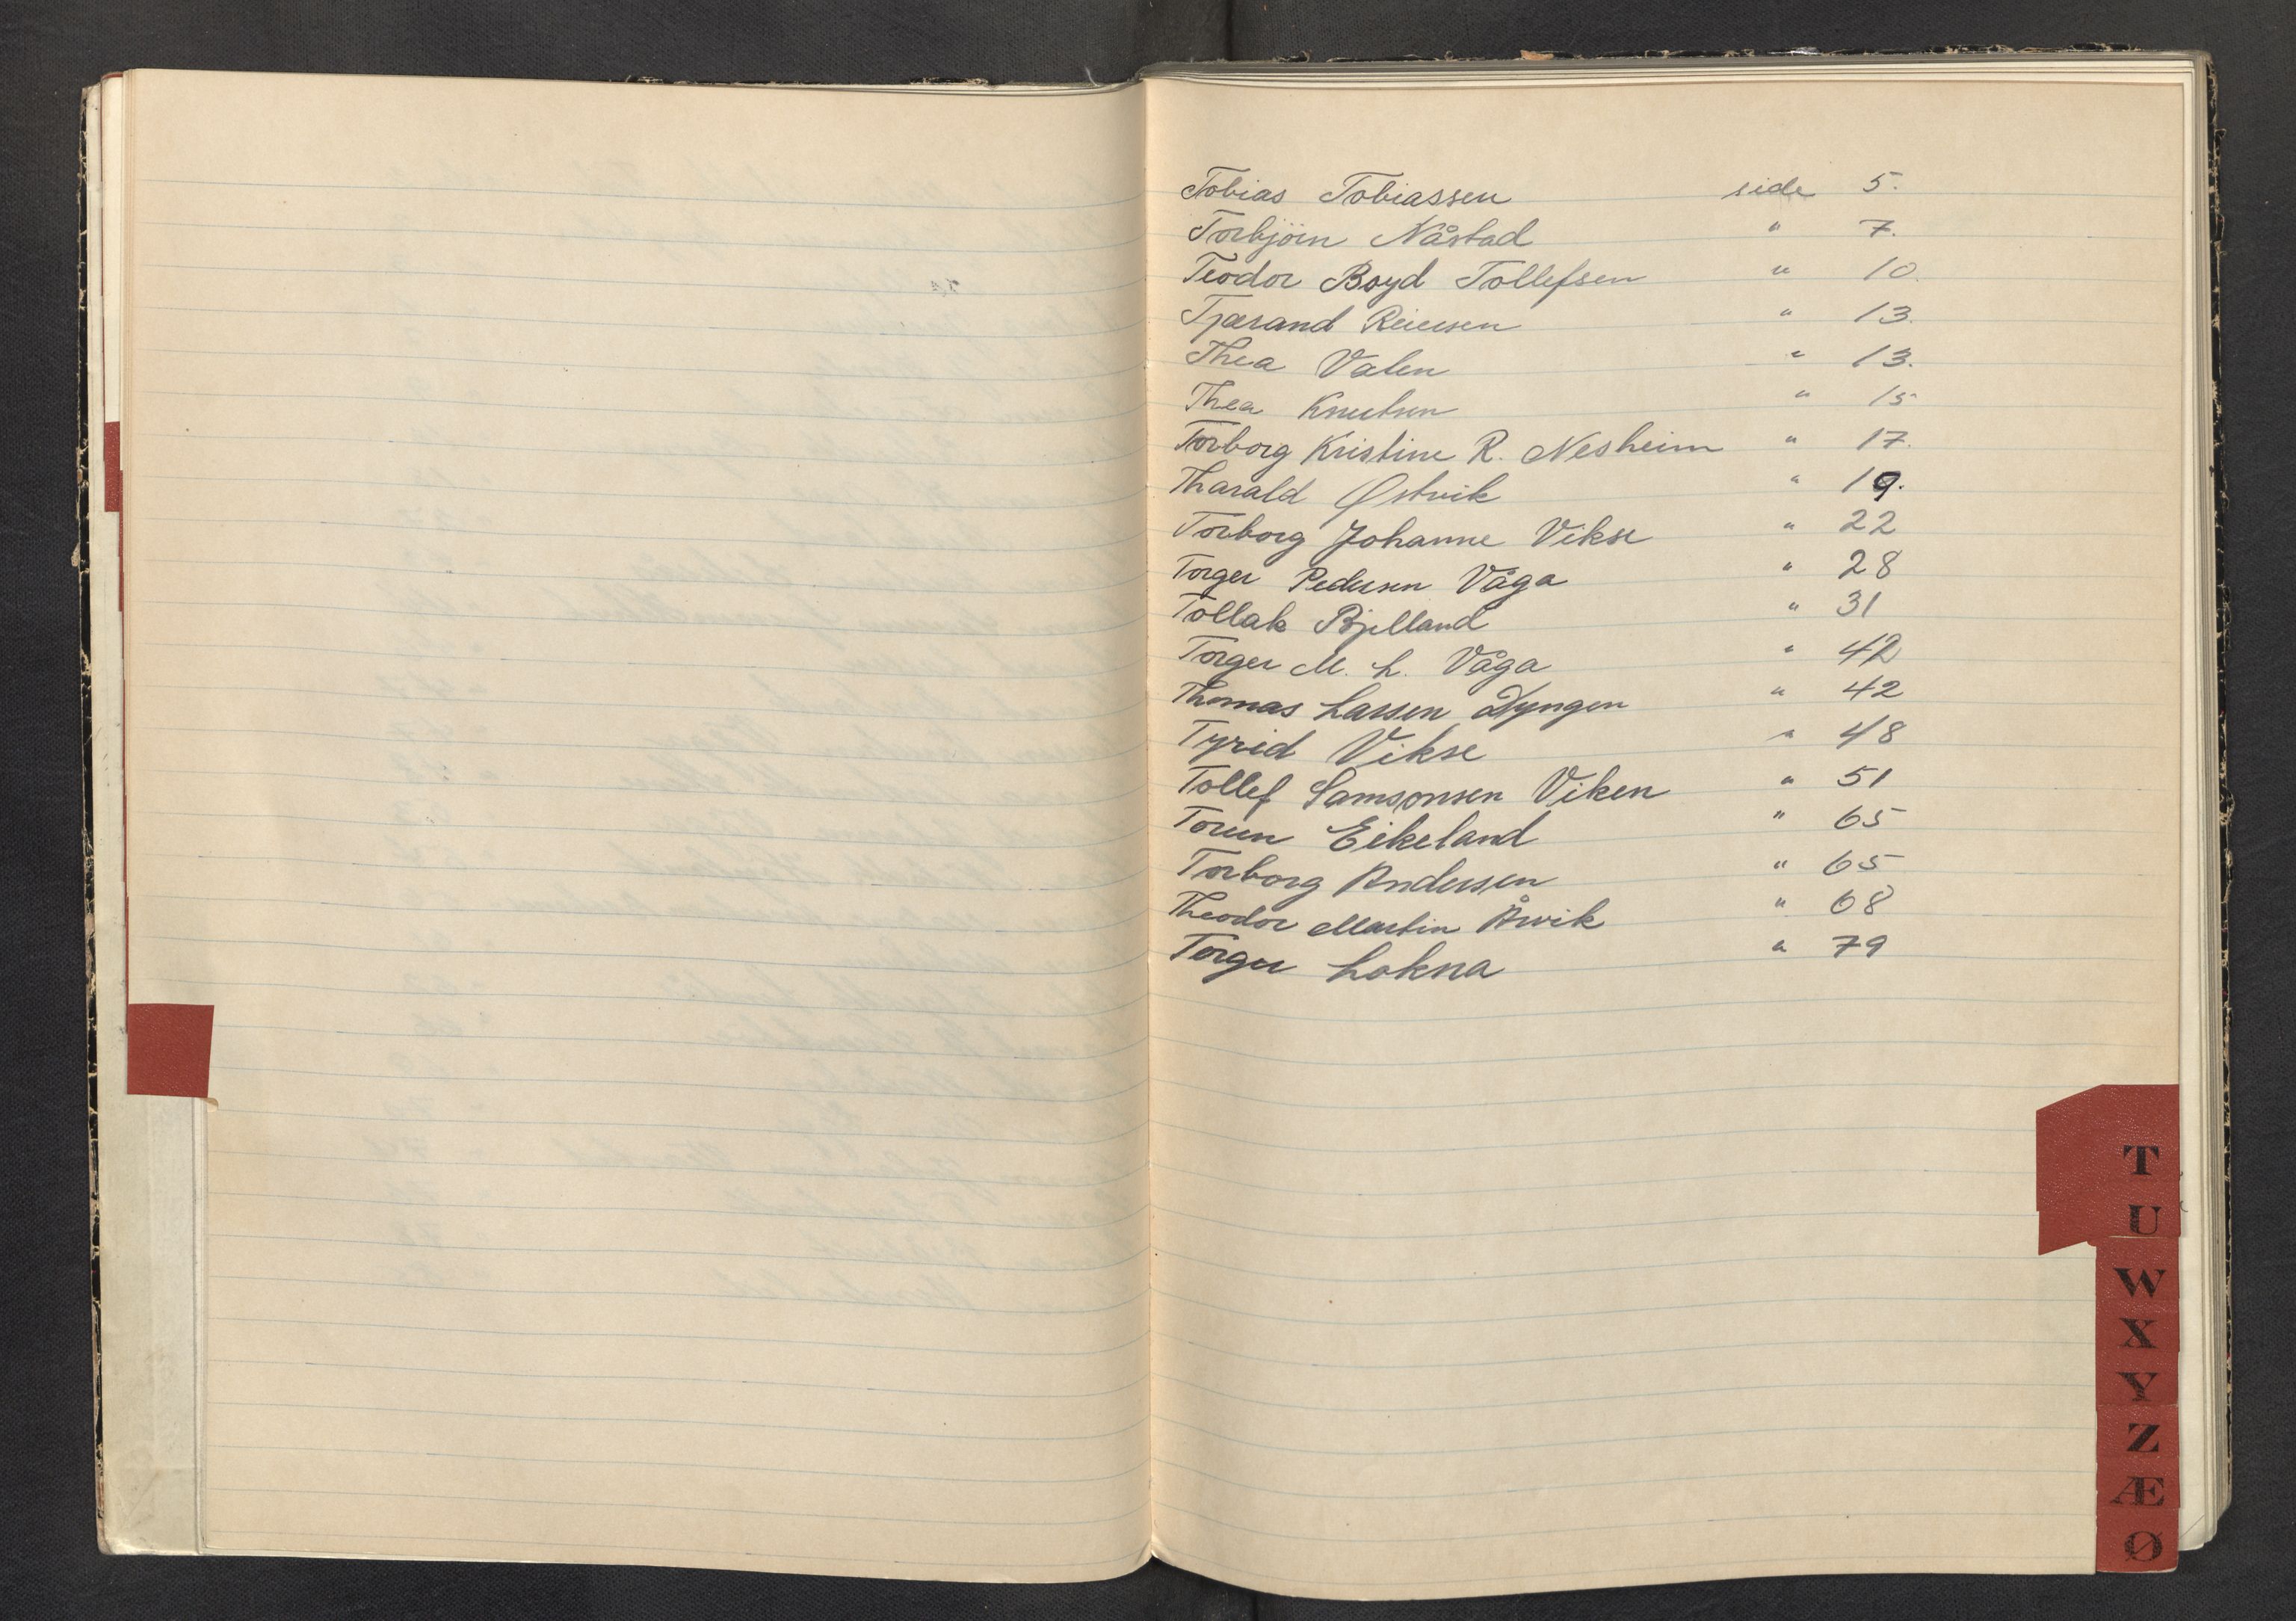 Tobias Tobiassen side 5.
Torbjörn Nåstad " 7.
Teodor Boyd Tollefsen " 10.
Tjærand Reiersen " 13.
Thea Valen " 13.
Thea Knutsen " 15
Torborg Kristine R. Nesheim " 17.
Tharald Østvik " 19.
Torborg Johanne Vikse " 22
Torger Pedersen Våga " 28
Tollak Bjelland " 31
Torger M. L. Våga " 42
Thomas Larsen Lyngen " 42
Tyrid Vikse " 48
Tollef Samsonsen Viken " 51
Torun Eikeland " 65
Torborg Andersen " 65
Theodor Martin Årvik " 68
Torger Lokna " 79
T
U
W
X
Y
Z
Æ
Ø